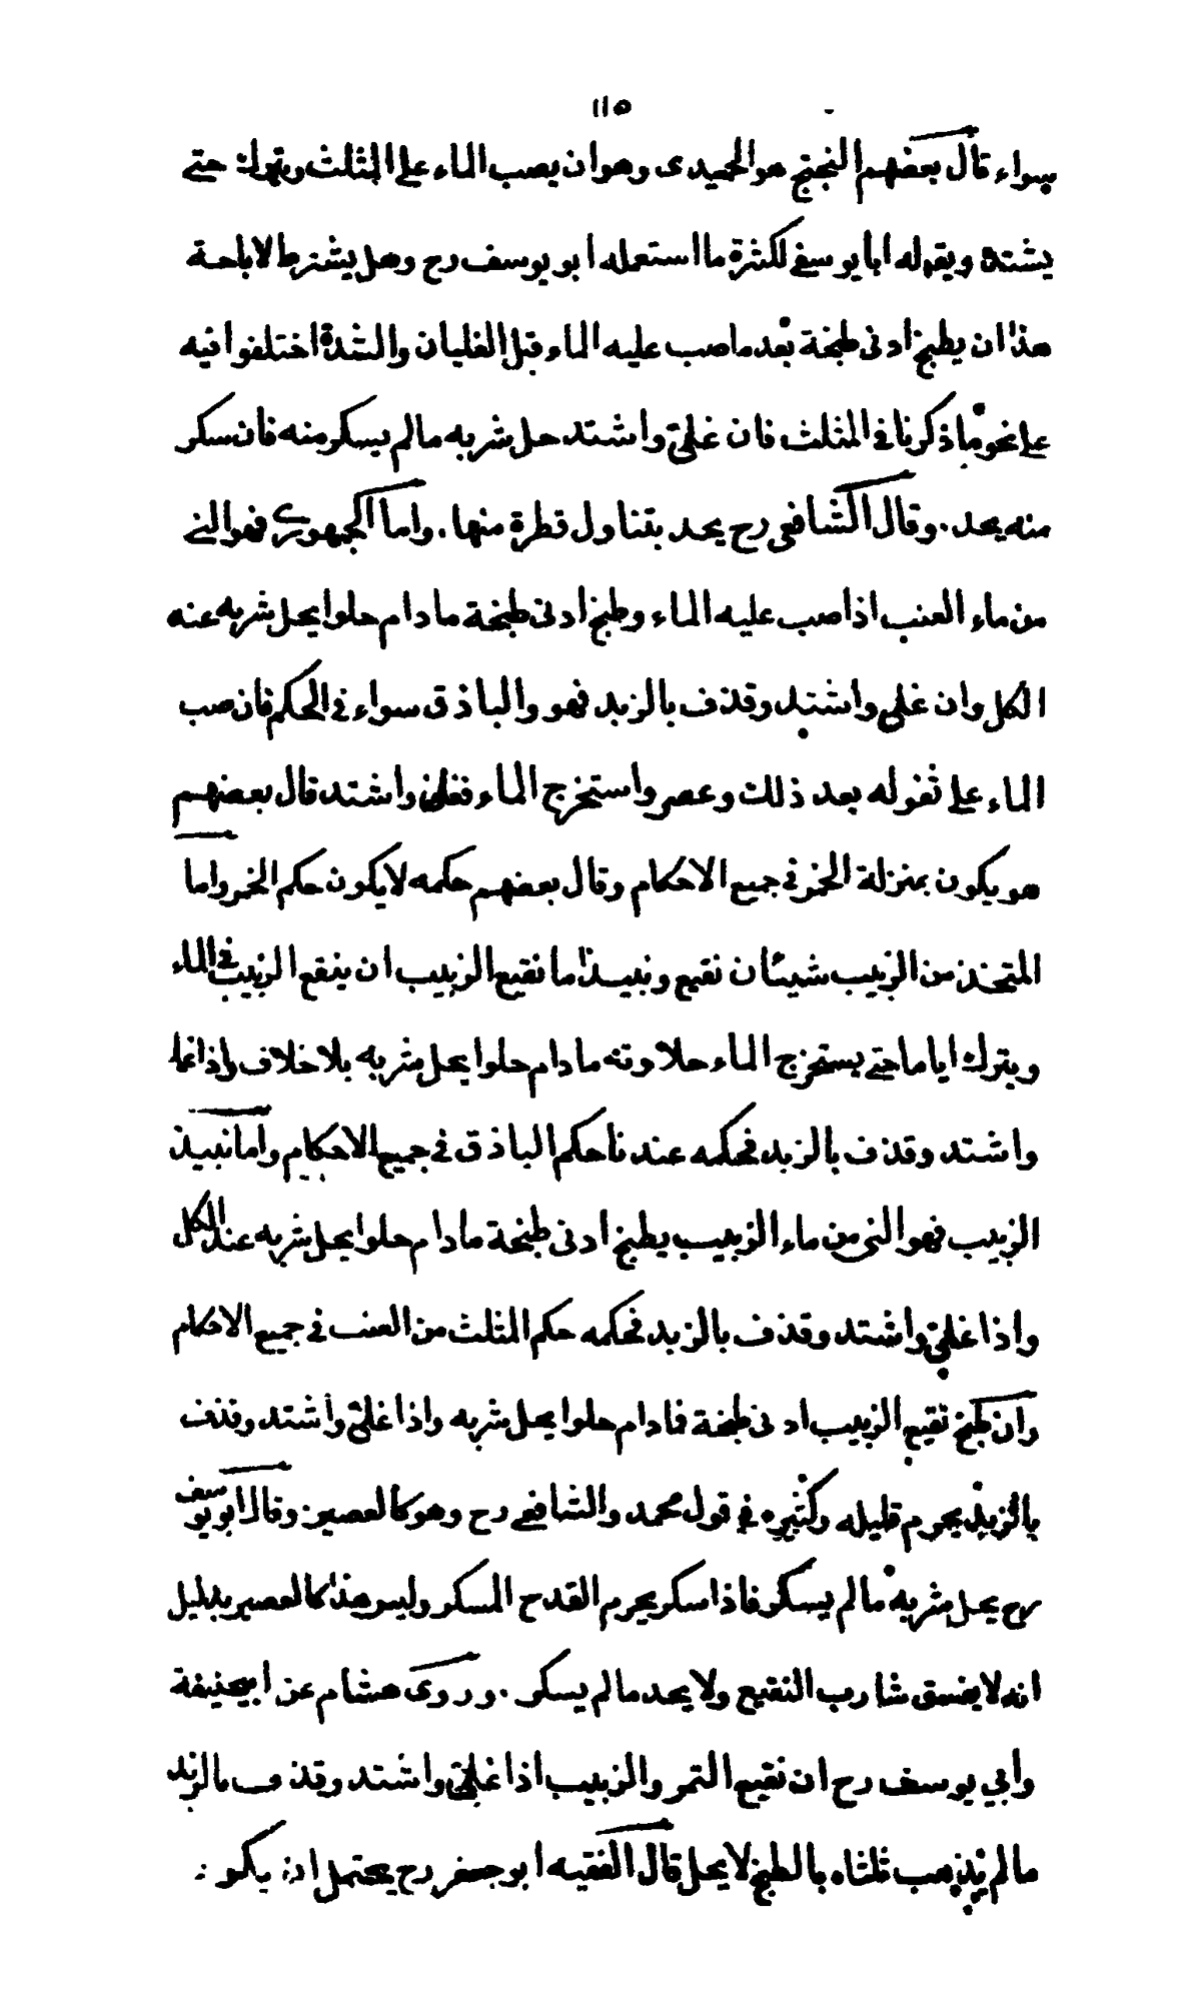 ١١٥
سواء قال بعضهم النجنج هو الحميدى وهو ان يصب الماء على المثلث ويترك حتى
يشتد ويقوله ابا يوسفى لكثرة ما استعمله ابو يوسف رح وهل يشترط لاباحة
هذا ان يطبخ ادنى طبخة بعد ما صب عليه الماء قبل الغليان والشدة اختلفوا فيه
على نحو ما ذكرنا فى المثلث فان غلى واشتد حل شربه ما لم يسكر منه فان سكر
منه يحد . وقال الشافعى رح يحد بتناول قطرة منها . واما الجمهورى فهو النى
من ماء العنب اذا صب عليه الماء وطبخ ادنى طبخة ما دام حلوا يحل شربه عنه
الكل وان غلى واشتد وقذف بالزبد فهو والباذق سواء فى الحكم فان صب
الماء على ثفوله بعد ذلك وعصر واستخرج الماء فغلى واشتد قال بعضهم
هو يكون بمنزلة الخمر فى جميع الاحكام وقال بعضهم حكمه لا يكون حكم الخمر واما
المتخذ من الزبيب شيئان نقيع ونبيذ اما نقيع الزبيب ان ينقع الزبيب فى الماء
ويترك اياما حتى يستخرج الماء حلاوته ما دام حلوا يحل شربه بلا خلاف واذا غلا
واشتد وقذف بالزبد فحكمه عندنا حكم الباذق فى جميع الاحكام واما نبيذ
الزبيب فهو النى من ماء الزبيب يطبخ ادنى طبخة ما دام حلوا يحل شربه عند الكل
واذا غلى واشتد وقذف بالزبد فحكمه حكم المثلث من العنب فى جميع الاحكام
وان طبخ نقيع الزبيب ادنى طبخة فما دام حلوا يحل شربه واذا غلى واشتد وقذف
بالزبد يحرم قليله وكثيره فى قول محمد والشافعى رح وهو كالعصير وقال ابو يوسف
رح يحل شربه ما لم يسكر فاذا سكر يحرم القدح المسكر وليس هذا كالعصير بدليل
انه لا يفسق شارب النقيع ولا يحد ما لم يسكر . وروى هشام عن ابيحنيفة
وابي يوسف رح ان نقيع التمر والزبيب اذا غلى واشتد وقذف بالزبد
ما لم يذهب ثلثاه بالطبخ لا يحل قال الفقيه ابو جعفر رح يحتمل ان يكون